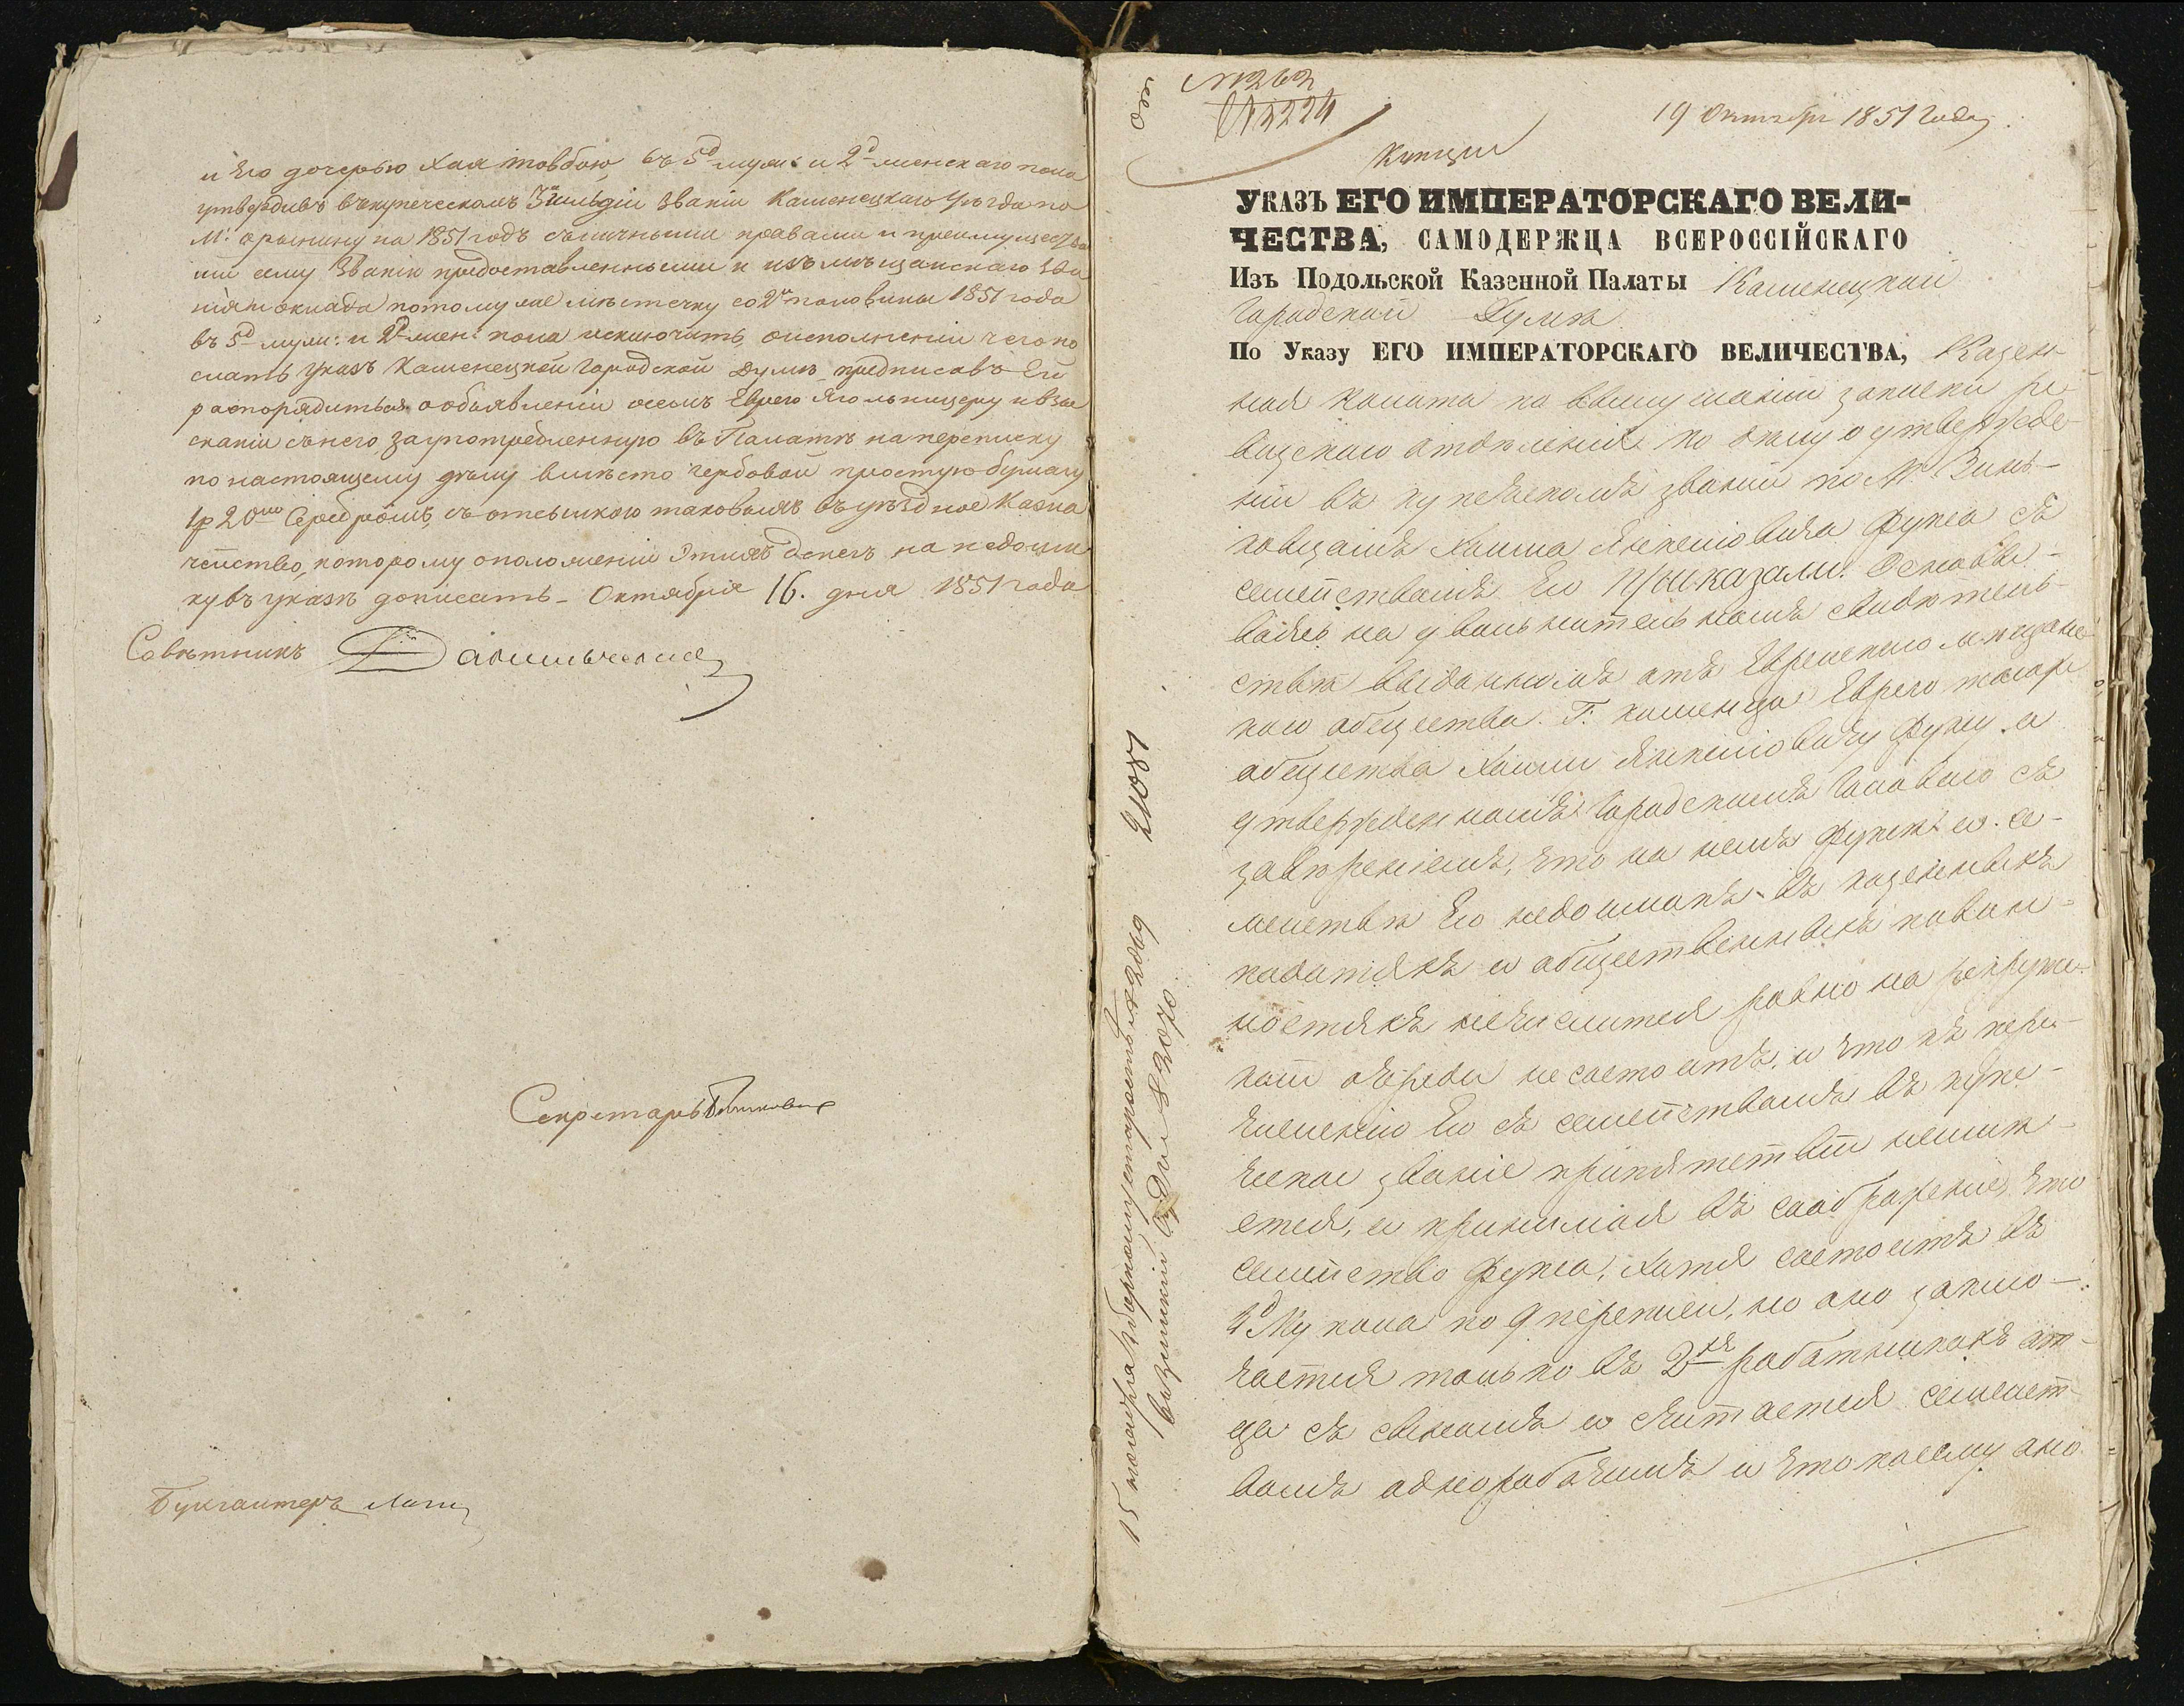 и Его дочерью Хая товбою, въ 5д муж: и 2д женскаго пола
утвердивъ въ купеческомъ 3й гильдіи званіи Каменецкаго уѣзда по
М: Орынину на 1851 годъ съ личными правами и преимущества
ми сему званію предоставленными и изъ мѣщанскаго зва
нія и оклада потому же мѣстечку со 2й половины 1851 года
въ 5д муж: и 2д жен: пола исключить, о исполненіи чего по
слать указъ Каменецкой Городской Думѣ, предписавъ Ей
распорядиться о объявленіи о семъ Еврею Ягольницеру и взы
сканіи съ него за употребленную въ Палатѣ на переписку
по настоящему дѣлу вмѣсто гербовой простую бумагу
1р 20 Серебромъ, съ отсылкою таковыхъ въ уѣздное Казна
чейство, которому о пополненіи этихъ денегъ на недоим
ку въ указѣ дописать. Октября 16. дня 1851 года
Совѣтникъ
Секретарь
Бухгалтеръ
№ 262
19 Октября 1851 Года.
Купцы
УКАЗЪ ЕГО ИМПЕРАТОРСКАГО ВЕЛИ-
ЧЕСТВА, САМОДЕРЖЦА ВСЕРОССІЙСКАГО
Изъ Подольской Казенной Палаты Каменецкой
Городской Думѣ
По Указу ЕГО ИМПЕРАТОРСКАГО ВЕЛИЧЕСТВА, Казен-
ная палата по выслушаніи записки ре-
визскаго отдѣленія по дѣлу о утвержде-
ніи въ купеческомъ званіи по М: Винь-
ковцамъ Хаима Янкеліовича Фукса съ
семействомъ Его Приказали: Основы-
ваясь на увольнительномъ свидѣтель-
ствѣ выданномъ отъ Еврейскаго мѣщанс-
каго общества Г: Каменца Еврею того же
общества Хаиму Янкеліовичу Фуксу и
утвержденномъ Городскимъ Головою съ
завѣреніемъ, что на немъ Фуксѣ и се-
мействѣ Его недоимокъ въ казенныхъ
податяхъ и общественныхъ повин-
ностяхъ нечислится равно на рекрутс-
кой очереди несостоитъ, и что къ пере-
численію Его съ семействомъ въ купе-
ческое званіе припятствій неимѣ-
ется, и принимая въ соображеніе, что
семейство Фукса, хотя состоитъ въ
4д Му пола по 9 переписи, но оно заклю-
чается только въ 2хъ работникахъ от-
ца съ сыномъ и считается семейст-
вомъ одноработнымъ и что посему оно
21081
15 ноября